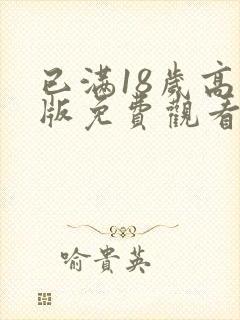 已满18歲高
版免費觀看
喻貴英